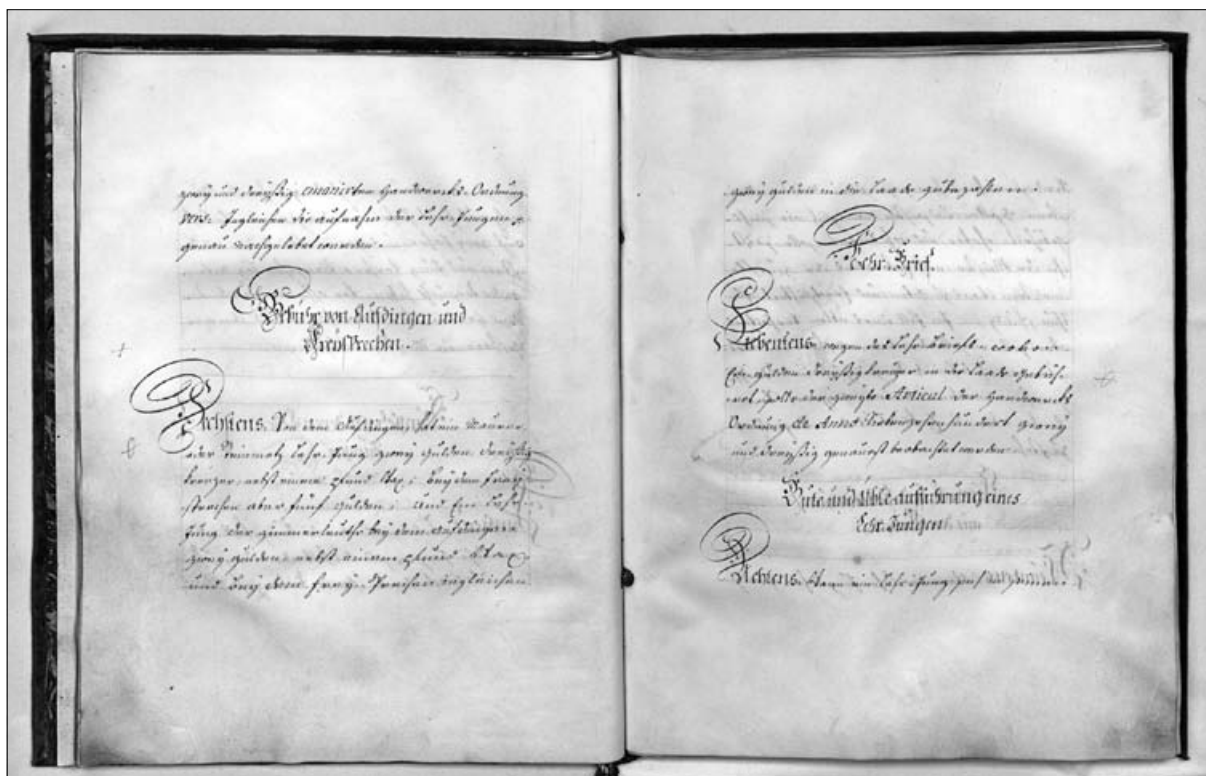 zwey und dreyßig emanirten Handwercks-Ordnung
wie Ingleichen die Aufnahm der Lehr-Jungen
genau nachgelebet werden.
Gebühr von Aufdingen und
Freysprechen.
Sechstens. Von dem Aufdingen, hat ein Maurer
oder Steinmetz Lehr-Jung zwey Gulden dreyßig
kreuzer, nebst einem pfund Wax; bey dem frey
sprechen aber fünf Gulden; Und Ein Lehr-
Jung der Zimmerleuthe bey dem Aufdingen
zwey Gulden nebst einem pfund Wax
und bey dem frey-Sprechen ingleichen
zwey Gulden in die Laade zubezahlen.
Lehr-Brief.
Siebentens. wegen des Lehr-Briefs
Ein Gulden dreyßig kreuzer in die Laade
solle der Articul der Handwercks
Ordnung de Anno Siebenzehenhundert zwey
und dreyßig genauest beobachtet werden.
Gute und üble Aufführung eines
Lehr-Jungen.
Achtens. Wann ein Lehr-Jung sich